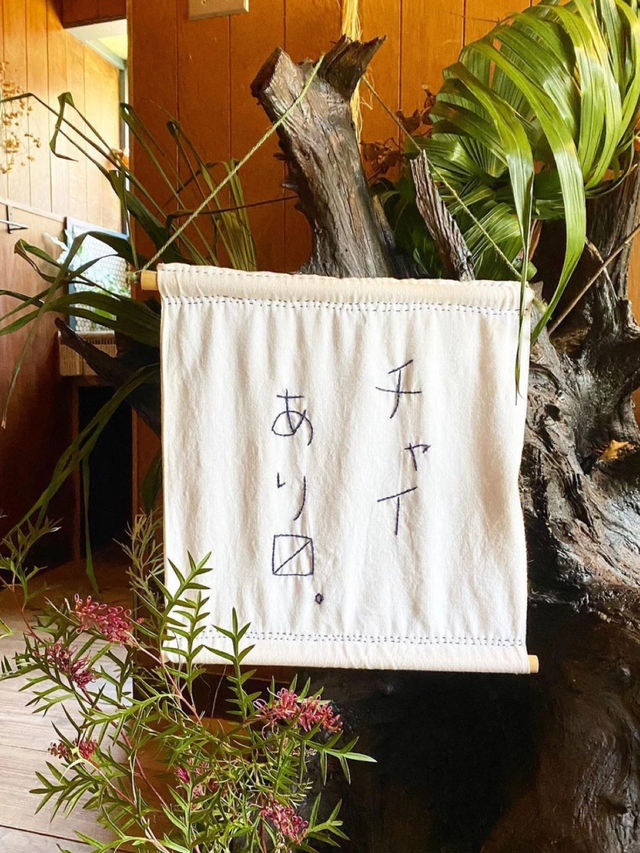 チャイ
あり〼。